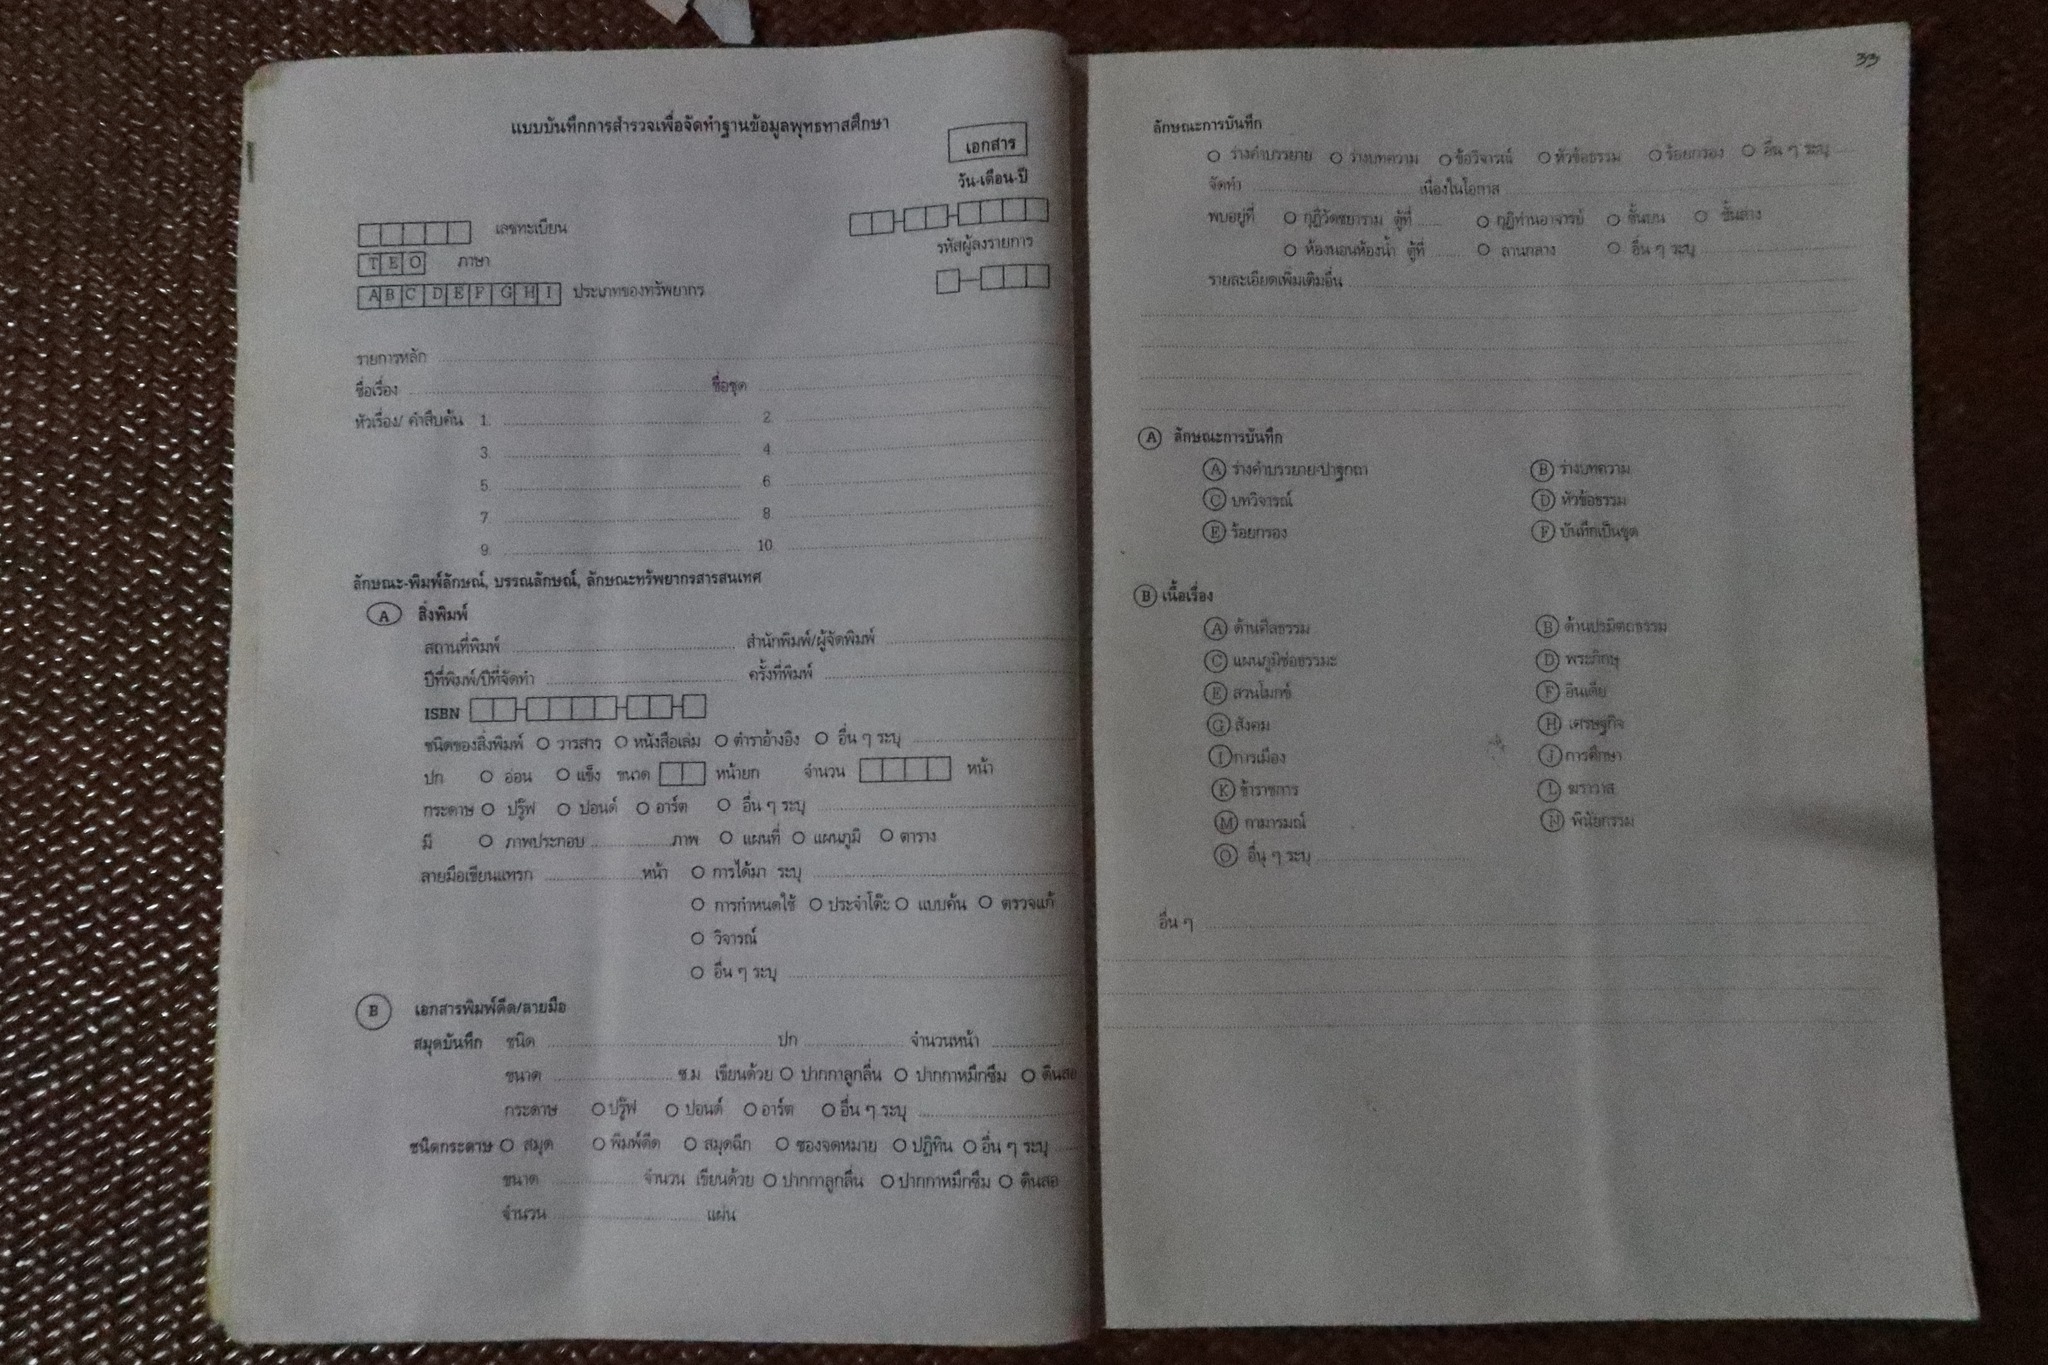 แบบบันทึกการสำรวจเพื่อจัดทำฐานข้อมูลพุทธทาสศึกษา
เอกสาร
วัน-เดือน-ปี
เลขทะเบียน
T E O ภาษา
รหัสผู้ลงรายการ
A B C D E F G H I ประเภทของทรัพยากร
รายการหลัก
ชื่อเรื่อง ชื่อชุด
หัวเรื่อง/ คำสืบค้น 1. 2.
3. 4.
5. 6
7 8
9. 10.
ลักษณะ-พิมพ์ลักษณ์, บรรณลักษณ์, ลักษณะทรัพยากรสารสนเทศ
A สิ่งพิมพ์
สถานที่พิมพ์ สำนักพิมพ์/ผู้จัดพิมพ์
ปีที่พิมพ์/ปีที่จัดทำ ครั้งที่พิมพ์
ISBN
ชนิดของสิ่งพิมพ์ O วารสาร O หนังสือเล่ม O ตำราอ้างอิง O อื่น ๆ ระบุ
ปก O อ่อน O แข็ง ขนาด หน้ายก จำนวน หน้า
กระดาษ O ปรู๊ฟ O ปอนด์ O อาร์ต O อื่น ๆ ระบุ
มี O ภาพประกอบ ภาพ O แผนที่ O แผนภูมิ O ตาราง
ลายมือเขียนแทรก หน้า O การได้มา ระบุ
O การกำหนดใช้ O ประจำโต๊ะ O แบบค้น O ตรวจแก้
O วิจารณ์
O อื่น ๆ ระบุ
B เอกสารพิมพ์ดีด/ลายมือ
สมุดบันทึก ชนิด ปก จำนวนหน้า
ขนาด ซ.ม เขียนด้วย O ปากกาลูกลื่น O ปากกาหมึกซึม O ดินสอ
กระดาษ O ปรู๊ฟ O ปอนด์ O อาร์ต O อื่น ๆ ระบุ
ชนิดกระดาษ O สมุด O พิมพ์ดีด O สมุดฉีก O ซองจดหมาย O ปฏิทิน O อื่น ๆ ระบุ
ขนาด จำนวน เขียนด้วย O ปากกาลูกลื่น O ปากกาหมึกซึม O ดินสอ
จำนวน แผ่น
33
ลักษณะการบันทึก
O ร่างคำบรรยาย O ร่างบทความ O ข้อวิจารณ์ O หัวข้อธรรม O ร้อยกรอง O อื่น ๆ ระบุ
จัดทำ เนื่องในโอกาส
พบอยู่ที่ O กุฏิวัดชยาราม ตู้ที่ O กุฏิท่านอาจารย์ O ชั้นบน O ชั้นล่าง
O ห้องนอนห้องน้ำ ตู้ที่ O ลานกลาง O อื่น ๆ ระบุ
รายละเอียดเพิ่มเติมอื่น
A ลักษณะการบันทึก
A ร่างคำบรรยาย-ปาฐกถา B ร่างบทความ
C บทวิจารณ์ D หัวข้อธรรม
E ร้อยกรอง F บันทึกเป็นชุด
B เนื้อเรื่อง
A ด้านศีลธรรม B ด้านปรมัตถธรรม
C แผนภูมิข้อธรรมะ D พระภิกษุ
E สวนโมกข์ F อินเดีย
G สังคม H เศรษฐกิจ
I การเมือง J การศึกษา
K ข้าราชการ L ฆราวาส
M กามารมณ์ N พินัยกรรม
O อื่นๆ ระบุ
อื่น ๆ